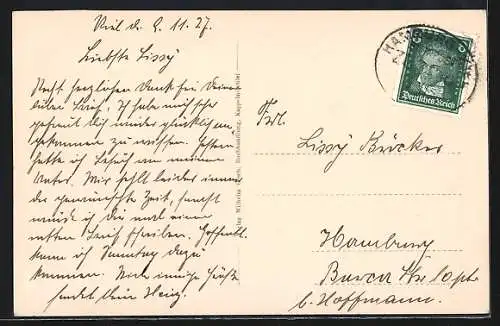 Kiel d. 9.11.27.
Liebste Lissy!
Recht herzlichen Dank für Deinen
lieben Brief. Ich habe mich sehr
gefreut Dich wieder glücklich an-
gekommen zu wissen. Gestern
hatte ich Besuch von meinem
Vater. Mir fehlt leider immer
die gewünschte Zeit, sonst
würde ich Dir mal einen
netten Brief schreiben. Hoffentl.
kann ich Sonntag dazu
kommen. Noch innige Grüße
sendet Dein Heinz.
Wilhelm
HAMBURG
Deutsches Reich
Frl.
Lissy Brücker
Hamburg
10 ptr
b. Hoffmann.